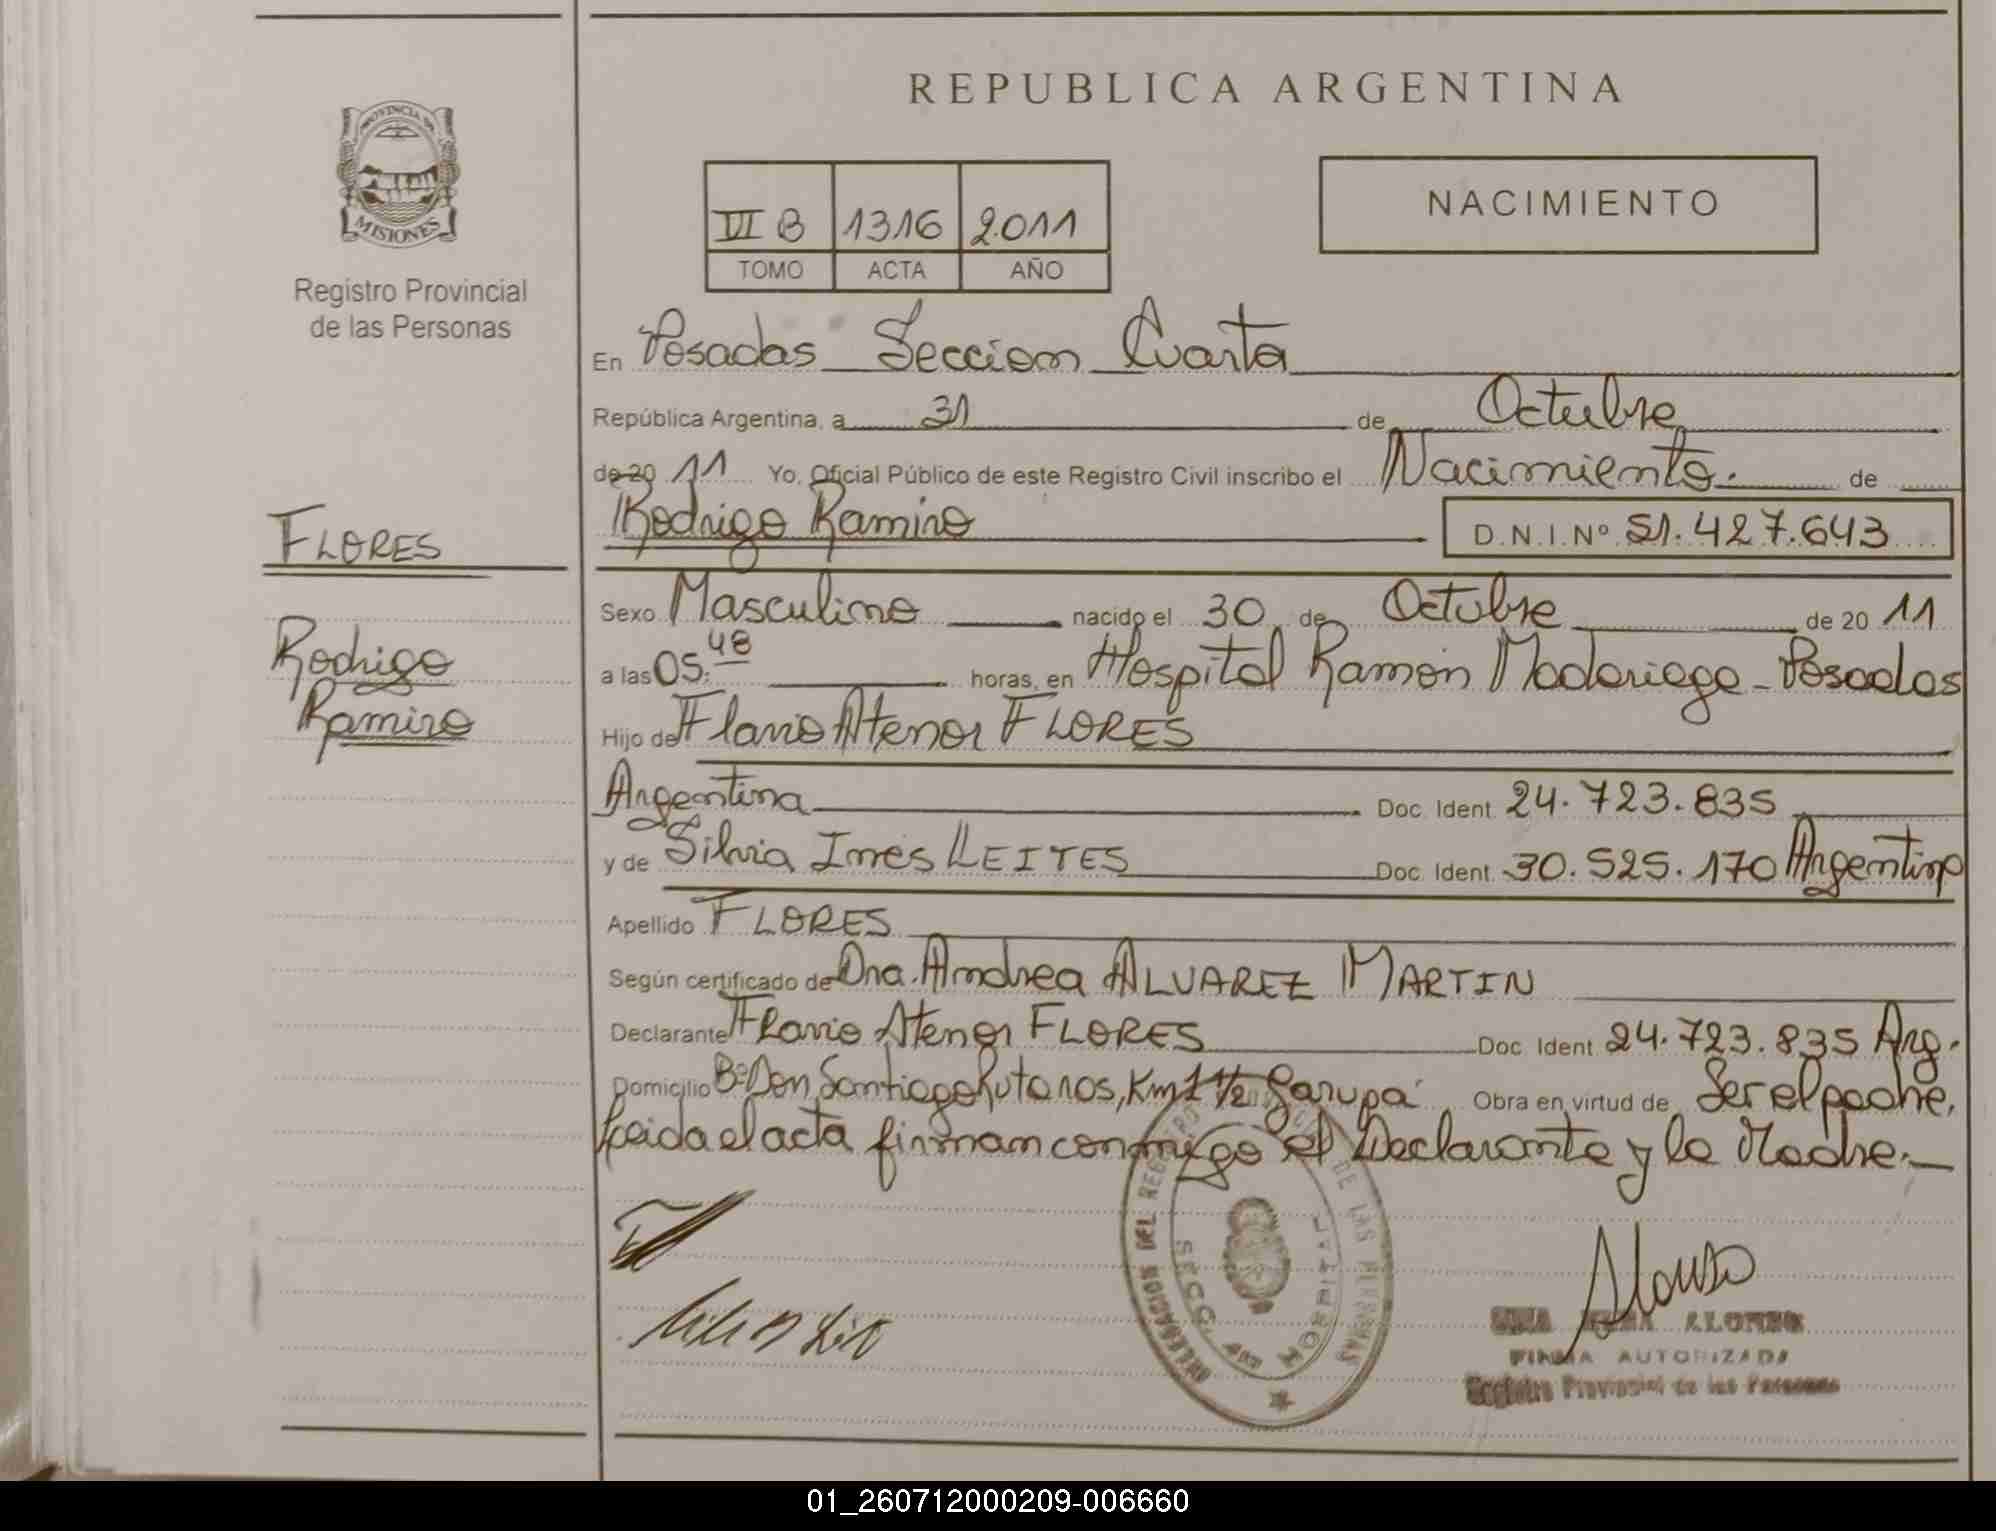 REPUBLICA ARGENTINA
PROVINCIA DE
MISIONES
Registro Provincial
de las Personas
NACIMIENTO
VI B 1316 2.011
TOMO ACTA AÑO
En Posadas Seccion Cuarta
República Argentina, a 31 de Octubre
de 20 11 Yo, Oficial Público de este Registro Civil inscribo el Nacimiento. de
Rodrigo Ramiro D.N.I. Nº 51.427.643
FLORES
Rodrigo
Ramiro
Sexo Masculino nacido el 30 de Octubre de 20 11
a las 05:48 horas, en Hospital Ramón Madariaga - Posadas
Hijo de Flavio Atenor FLORES
Argentina Doc. Ident. 24.723.835
y de Silvia Ines LEITES Doc. Ident. 30.525.170 Argentina
Apellido FLORES
Según certificado de Dra. Andrea ALVAREZ MARTIN
Declarante Flavio Atenor FLORES Doc. Ident. 24.723.835 Arg.
Domicilio Bº Don Santiago Ruta nos, Km 1 1/2 Garupá Obra en virtud de Ser el padre.
Leida el acta firman conmigo el Declarante y la Madre.
DELEGACION DEL REGISTRO DE LAS PERSONAS
SECC. 4ta HOSPITAL
Alonso
ALONSO
FIRMA AUTORIZADA
Registro Provincial de las Personas
01_260712000209-006660